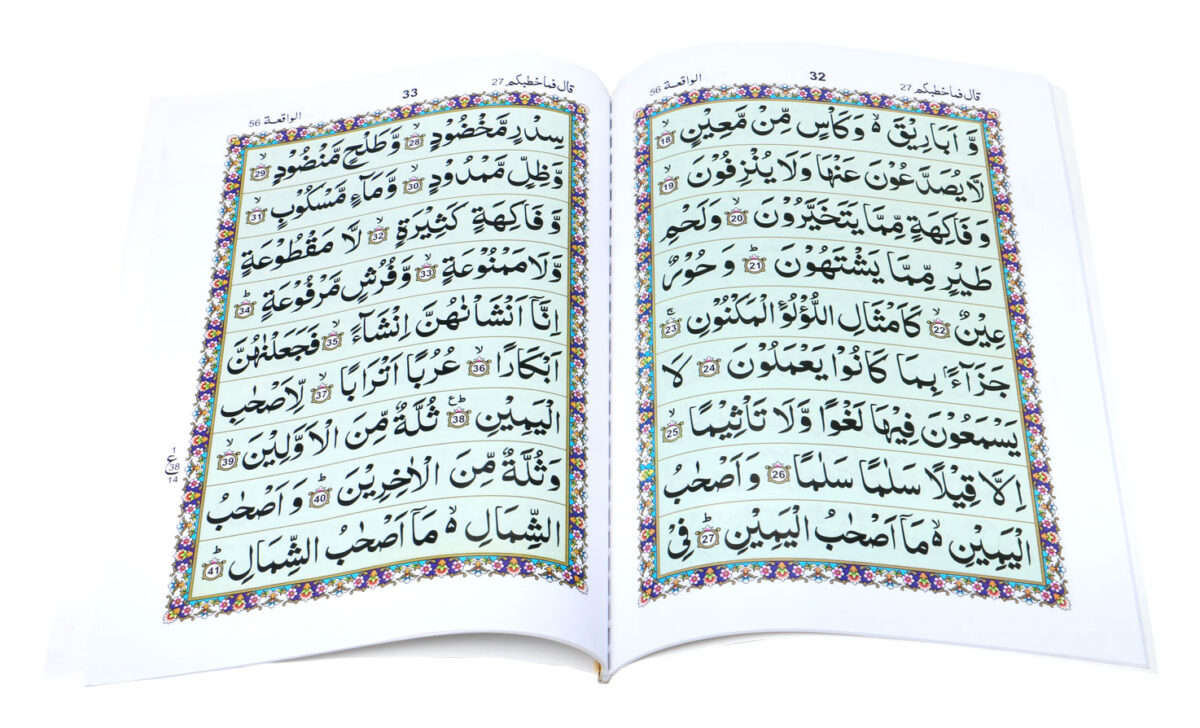 الواقعة 56
32
قال فماخطبكم 27
وَّ اَبَارِيْقَ ۙ وَ كَاْسٍ مِّنْ مَّعِيْنٍ ۙ 18
لَّا يُصَدَّعُوْنَ عَنْهَا وَ لَا يُنْزِفُوْنَ ۙ 19
وَ فَاكِهَةٍ مِّمَّا يَتَخَيَّرُوْنَ ۙ 20 وَ لَحْمِ
طَيْرٍ مِّمَّا يَشْتَهُوْنَ ؕ 21 وَ حُوْرٌ
عِيْنٌ ۙ 22 كَاَمْثَالِ اللُّؤْلُؤِ الْمَكْنُوْنِ ۚ 23
جَزَآءًۢ بِمَا كَانُوْا يَعْمَلُوْنَ 24 لَا
يَسْمَعُوْنَ فِيْهَا لَغْوًا وَّ لَا تَاْثِيْمًا ۙ 25
اِلَّا قِيْلًا سَلٰمًا سَلٰمًا 26 وَ اَصْحٰبُ
الْيَمِيْنِ ۙ مَاۤ اَصْحٰبُ الْيَمِيْنِ ؕ 27 فِيْ
الواقعة 56
33
قال فماخطبكم 27
سِدْرٍ مَّخْضُوْدٍ ۙ 28 وَّ طَلْحٍ مَّنْضُوْدٍ ۙ 29
وَّ ظِلٍّ مَّمْدُوْدٍ ۙ 30 وَّ مَآءٍ مَّسْكُوْبٍ ۙ 31
وَّ فَاكِهَةٍ كَثِيْرَةٍ ۙ 32 لَّا مَقْطُوْعَةٍ
وَّ لَا مَمْنُوْعَةٍ ۙ 33 وَّ فُرُشٍ مَّرْفُوْعَةٍ ؕ 34
اِنَّاۤ اَنْشَاْنٰهُنَّ اِنْشَآءً ۙ 35 فَجَعَلْنٰهُنَّ
اَبْكَارًا ۙ 36 عُرُبًا اَتْرَابًا ۙ 37 لِّاَصْحٰبِ
الْيَمِيْنِ ؕع 38 ثُلَّةٌ مِّنَ الْاَوَّلِيْنَ ۙ 39
وَ ثُلَّةٌ مِّنَ الْاٰخِرِيْنَ ؕ 40 وَ اَصْحٰبُ
الشِّمَالِ ۙ مَاۤ اَصْحٰبُ الشِّمَالِ ؕ 41
1
ع
38
14